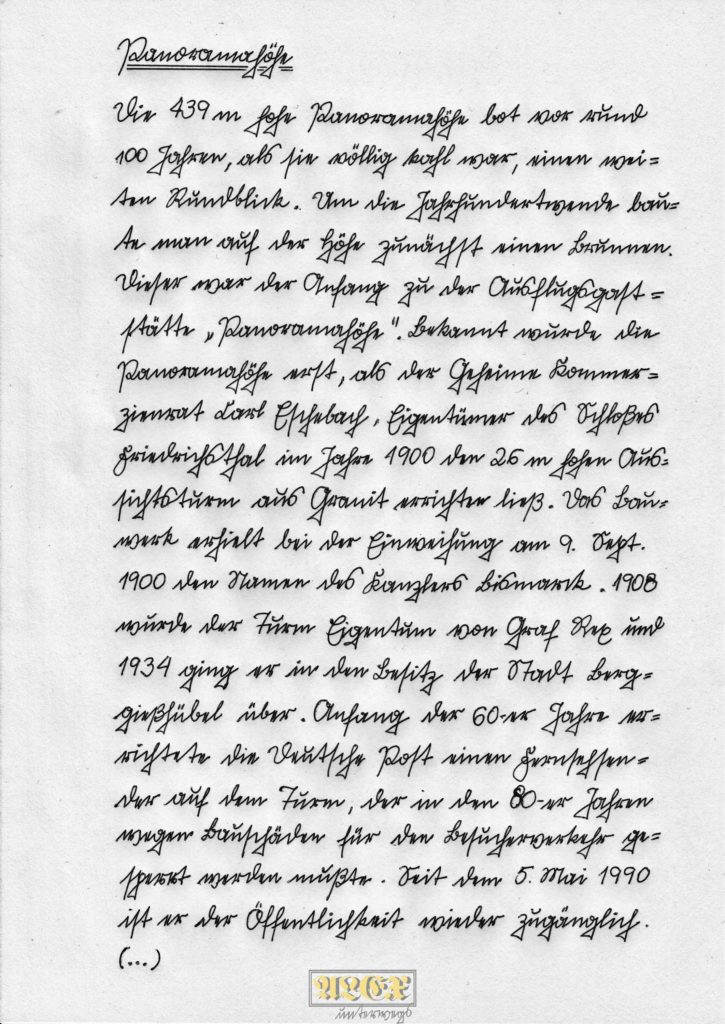 Panoramahöhe
Die 439 m hohe Panoramahöhe bot vor rund
100 Jahren, als sie völlig kahl war, einen wei=
ten Rundblick. Um die Jahrhundertwende bau=
te man auf der Höhe zunächst einen Brunnen.
Dieser war der Anfang zu der Ausflugsgast=
stätte „Panoramahöhe". Bekannt wurde die
Panoramahöhe erst, als der Geheime Kommer=
zienrat Carl Eschebach, Eigentümer des Schloßes
Friedrichsthal im Jahre 1900 den 26 m hohen Aus=
sichtsturm aus Granit errichten ließ. Das Bau=
werk erhielt bei der Einweihung am 9. Sept.
1900 den Namen des Kanzlers Bismarck. 1908
wurde der Turm Eigentum von Graf Rex und
1934 ging er in den Besitz der Stadt Berg=
gießhübel über. Anfang der 60-er Jahre er=
richtete die Deutsche Post einen Fernsehsen=
der auf dem Turm, der in den 80-er Jahren
wegen Bauschäden für den Besucherverkehr ge=
sperrt werden mußte. Seit dem 5. Mai 1990
ist er der Öffentlichkeit wieder zugänglich.
(...)
ALEX
unterwegs